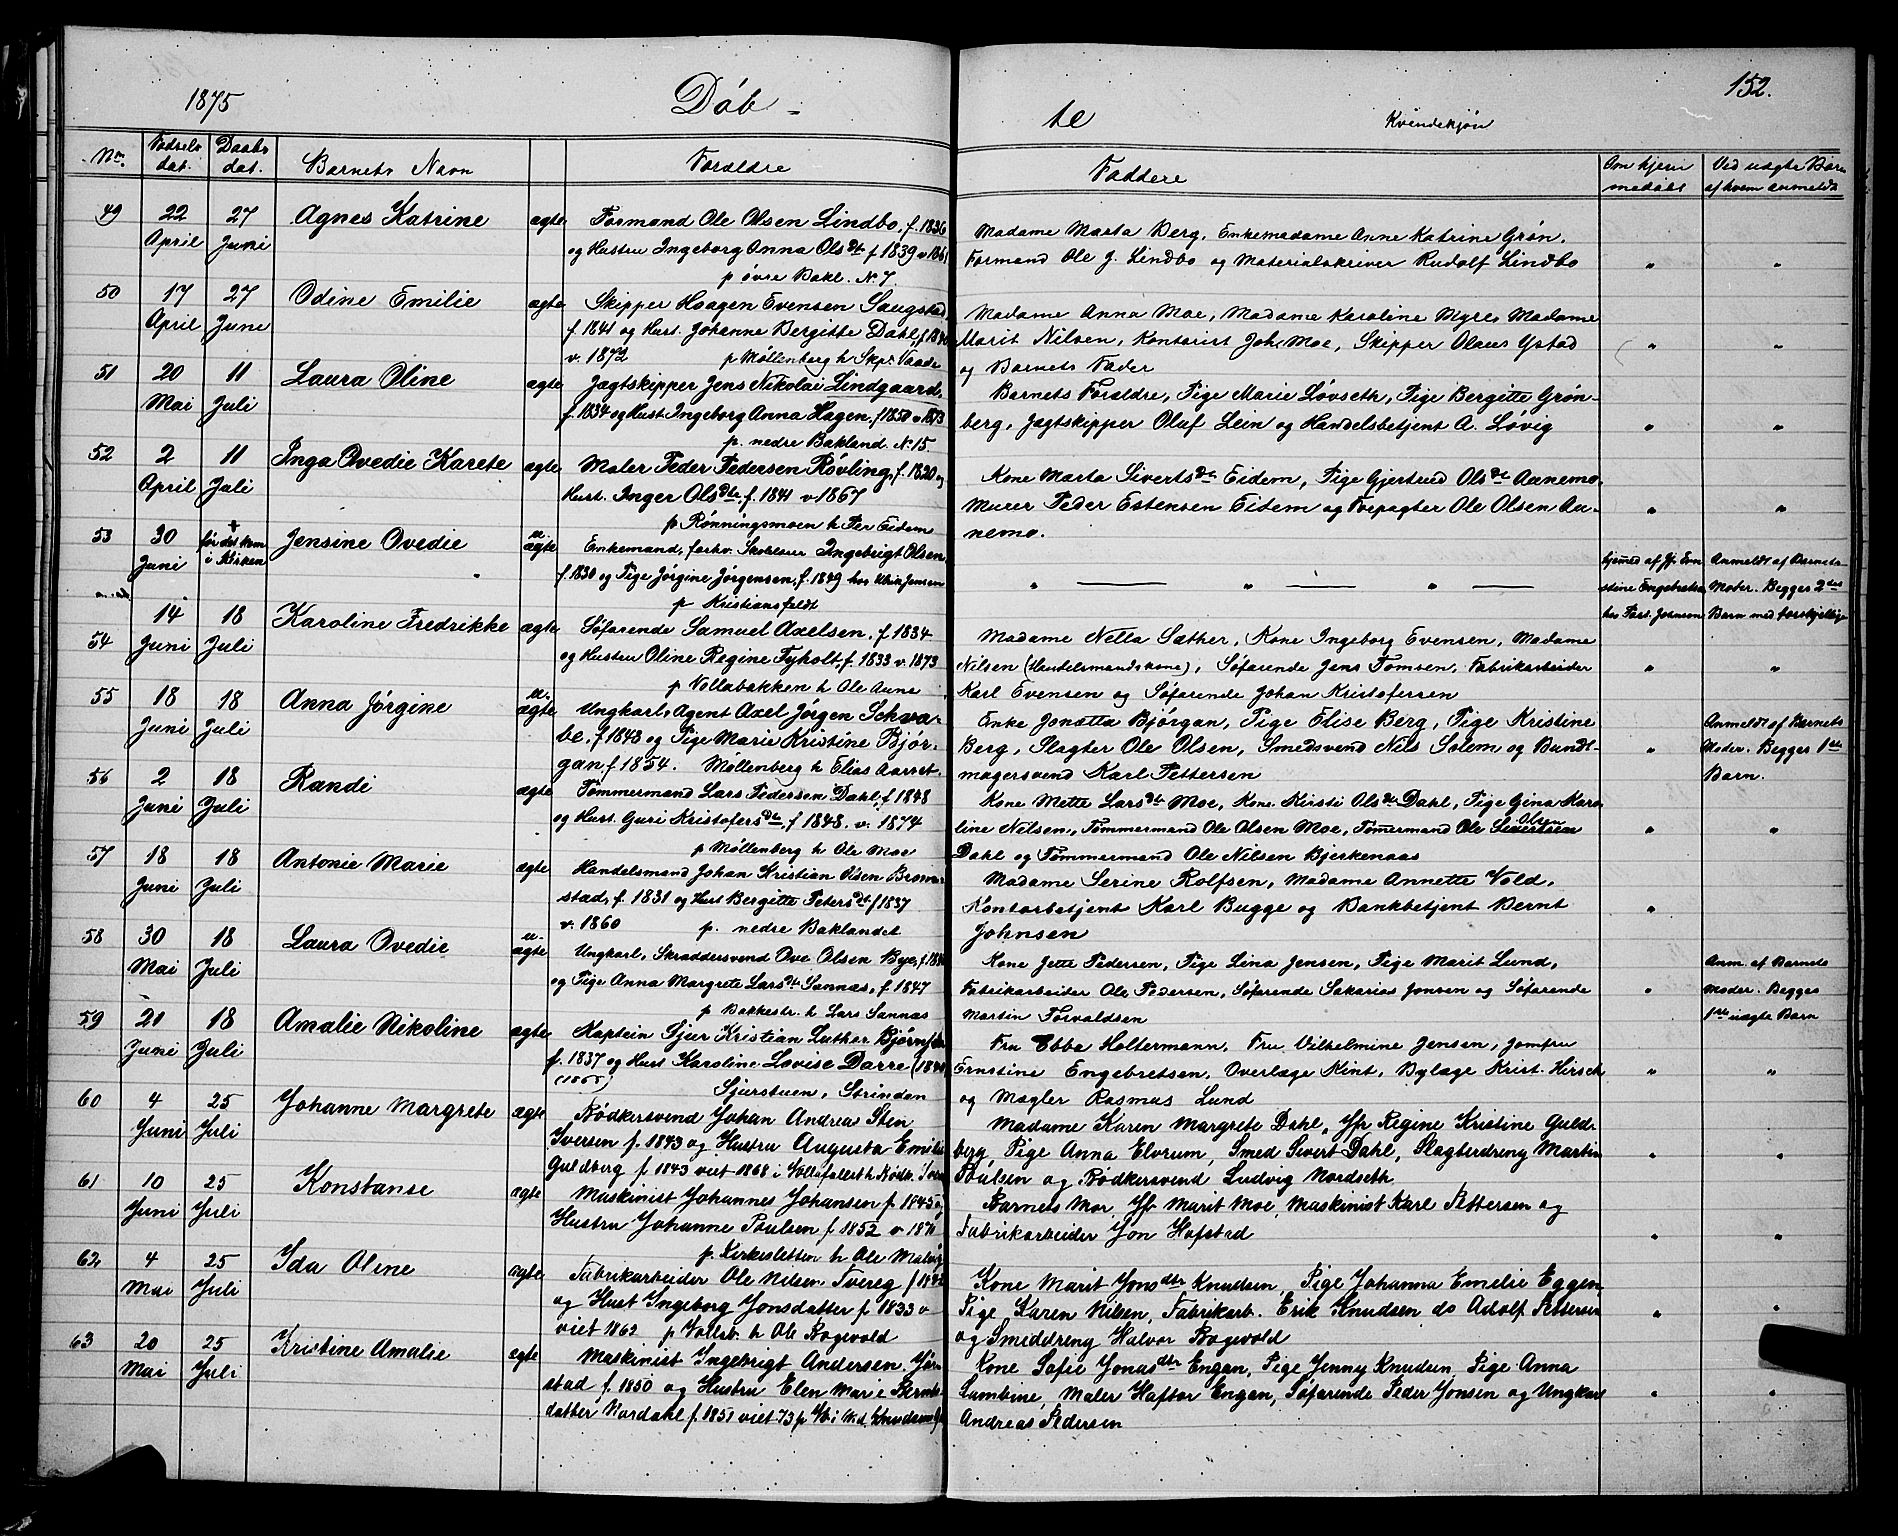 1875 Döb- te Kvindekjön 152.
No. Fødsels dat. Daabs dat. Barnets Navn Foræeldre Faddere Om hjemmedöbt Ved uægte Børn af hvem anmeldt
49 22 April 27 Juni Agnes Katrine ægte Formand Ole Olsen Lindbo, f. 1836
og Hustru Ingeborg Anna Olsdt f 1839 v. 1861
p övre Bakl. N. 7.
Madame Marta Berg, Enkemadame Anne Katrine Grön,
Formand Ole J. Lindbo og Materialskriver Rudolf Lindbo " "
50 17 April 27 June Odine Emilie ægte Skipper Haagen Evensen Saugstad,
f. 1841 og Hust. Johanne Bergitte Dahl,
v. 1872 p Möllenberg h Skpr.
Madame Anna Moe, Madame Karoline Myre, Madame
Marit Nilsen, Kontorist Joh. Moe, Skipper Olaus Ystad
og Barnets Fader " "
51 20 Mai 11 Juli Laura Oline ægte Jægtskipper Jens Nikolai Lindgaard,
f. 1834 og Hust. Ingeborg Anna Hagen, f 1850 v. 1873
p. nedre Bakland. N. 15.
Barnets Forældre, Pige Marie Lövseth, Pige Bergitte Grön-
berg, Jagtskipper Oluf Lein og Handelsbetjent A. Lövig " "
52 2 April 11 Juli Inga Ovedie Karete ægte Maler Peder Pedersen Rövling, f. 1820 og
Hust. Inger Olsdtr, f. 1841 v 1867
p Rönningsmoen h Per Eidem
Kone Marta Sivertsdt Eidem, Pige Gjertrud Olsdt Aanemo,
Murer Peder Estensen Eidem og Forpagter Ole Olsen Aa-
nemo. " "
53 30 Juni + før det kom i Kirken Jensine Ovedie u- ægte Enkemand, forhv. Skolelærer Ingebrigt Olsen
f. 1830 og Pige Jörgine Jörgensen, f. 1849 hos Jensen
p Kristiansfeldt
" " "
hjemmed. af Jfr. Ern
stine Engebretsen
hos Fast. Johnson
Anmeldt af Barnets
Moder. Begges 2det
Barn med forskjellige
54 14 Juni 18 Juli Karoline Fredrikke ægte Söfarende Samuel Axelsen, f. 1834
og Hustru Oline Regine Tyholt, f. 1833 v. 1873
p Vollabakken h Ole Aune
Madame Nella Sæther, Kone Ingeborg Evensen, Madame
Nilsen (Handelsmandskone), Söfarende Jens Tomsen, Fabrikarbeider
Karl Evensen og Söfarende Johan Kristofersen " "
55 18 Juni 18 Juli Anna Jörgine u- ægte Ungkarl, Agent Axel Jörgen Schwa-
be, f 1848 og Pige Marie Kristine Björ-
gan, f. 1854. Möllenberg h Elias Aarset-
Enke Jonetta Björgan, Pige Elise Berg, Pige Kristine
Berg, Slagter Ole Olsen, Smedsvend Nils Solem og Bundt-
magersvend Karl Pettersen "
Anmeldt af Barnets
Moder. Begges 1ste
Barn.
56 2 Juni 18 Juli Randi ægte Tömmermand Lars Pedersen Dahl, f 1848
og Hust. Guri Kristofersdtr, f 1848. v. 1874
p Möllenberg h Ole Moe
Kone Mette Larsdt Moe, Kone Kirsti Olsdt Dahl, Pige Gina Karo-
line Nilsen, Tömmermand Ole Olsen Moe, Tömmermand Ole Sivertsen Olsen
Dahl og Tömmermand Ole Nilsen Bjerkenaas " "
57 18 Juni 18 Juli Antonie Marie ægte Handelsmand Johan Kristian Olsen Brom-
stad, f. 1831 og Hust Bergitte Petersdt f 1837
v. 1860 p. nedre Baklandet
Madame Serine Rolfsen, Madame Annette Vold,
Kontorbetjent Karl Bugge og Bankbetjent Bernt
Johnsen "
58 30 Mai 18 Juli Laura Ovedie u- ægte Ungkarl, Skræddersvend Ove Olsen Bye,
og Pige Anna Margrete Larsdt Sannas, f. 1847
p Bakkestr. h Lars Sannas
Kone Jette Pedersen, Pige Lina Jensen, Pige Marit Lund,
Fabrikarbeider Ole Pedersen, Söfarende Sakarias Jonsen og Söfarende
Martin Torvaldsen "
Anm. af Barnets
Moder. Begges
1ste uægte Barn
59 21 Juni 18 Juli Amalie Nikoline ægte Kaptein Sjur Kristian Luther
f. 1837 og Hust Karoline Lovise Darre
Sjurstuen, Strinden
Fru Ebba Holtermann, Fru Vilhelmine Jensen, Jomfru
Ernstine Engebretsen, Overlæge Kint, Bylæge Krist. Hirsch
og Mægler Rasmus Lund " "
60 4 Juni 25 Juli Johanne Margrete ægte Bödkersvend Johan Andrea Sten
Iversen f. 1843 og Hustru Augusta Emilie
Guldberg f 1843 viet 1868 i
Madame Karen Margrete Dahl, Jfr Regine Kristine Guld-
berg Pige Anna Elvrum, Smed Sivert Dahl, Slagterdreng Martin
Poulsen og Bödkersvend Ludvig Nordseth " "
61 10 Juni 25 Juli Konstanse ægte Maskinist Johannes Johansen f. 1845 og
Hustru Johanne Poulsen f 1852 v.
p. Kirkesletten h Ole
Barnets Mor, Jfr Marit Moe, Maskinist Karl Pettersen og
Fabrikarbeider Jon Hofstad " "
62 4 Mai 25 Juli Ida Oline ægte Fabrikarbeider Ole Nilsen Tvereg
og Hust Ingeborg Jonsdatter f 1833
viet 1862 p Vollsb. h Ole Bogevold
Kone Marit Jonsdtr Knudsen, Pige Johanna Emelie Eggen
Pige Karen Nilsen, Fabrikarb. Erik Knudsen do Adolf Pettersen
og Smeddreng Halvor Bogevold " "
63 20 Mai 25 Juli Kristine Amalie ægte Maskinist Ingebrigt Andersen
stad f. 1850 og Hustru Elen Marie Bernts-
datter Nordahl f. 1851 viet 73 p
Kone Sofie Jonasdtr Engan, Pige Jenny Knudsen, Pige Anna
Lumbine, Maler Haftor Engan, Söfarende Peder Jonsen og Ungkarl
Andreas Pedersen " "